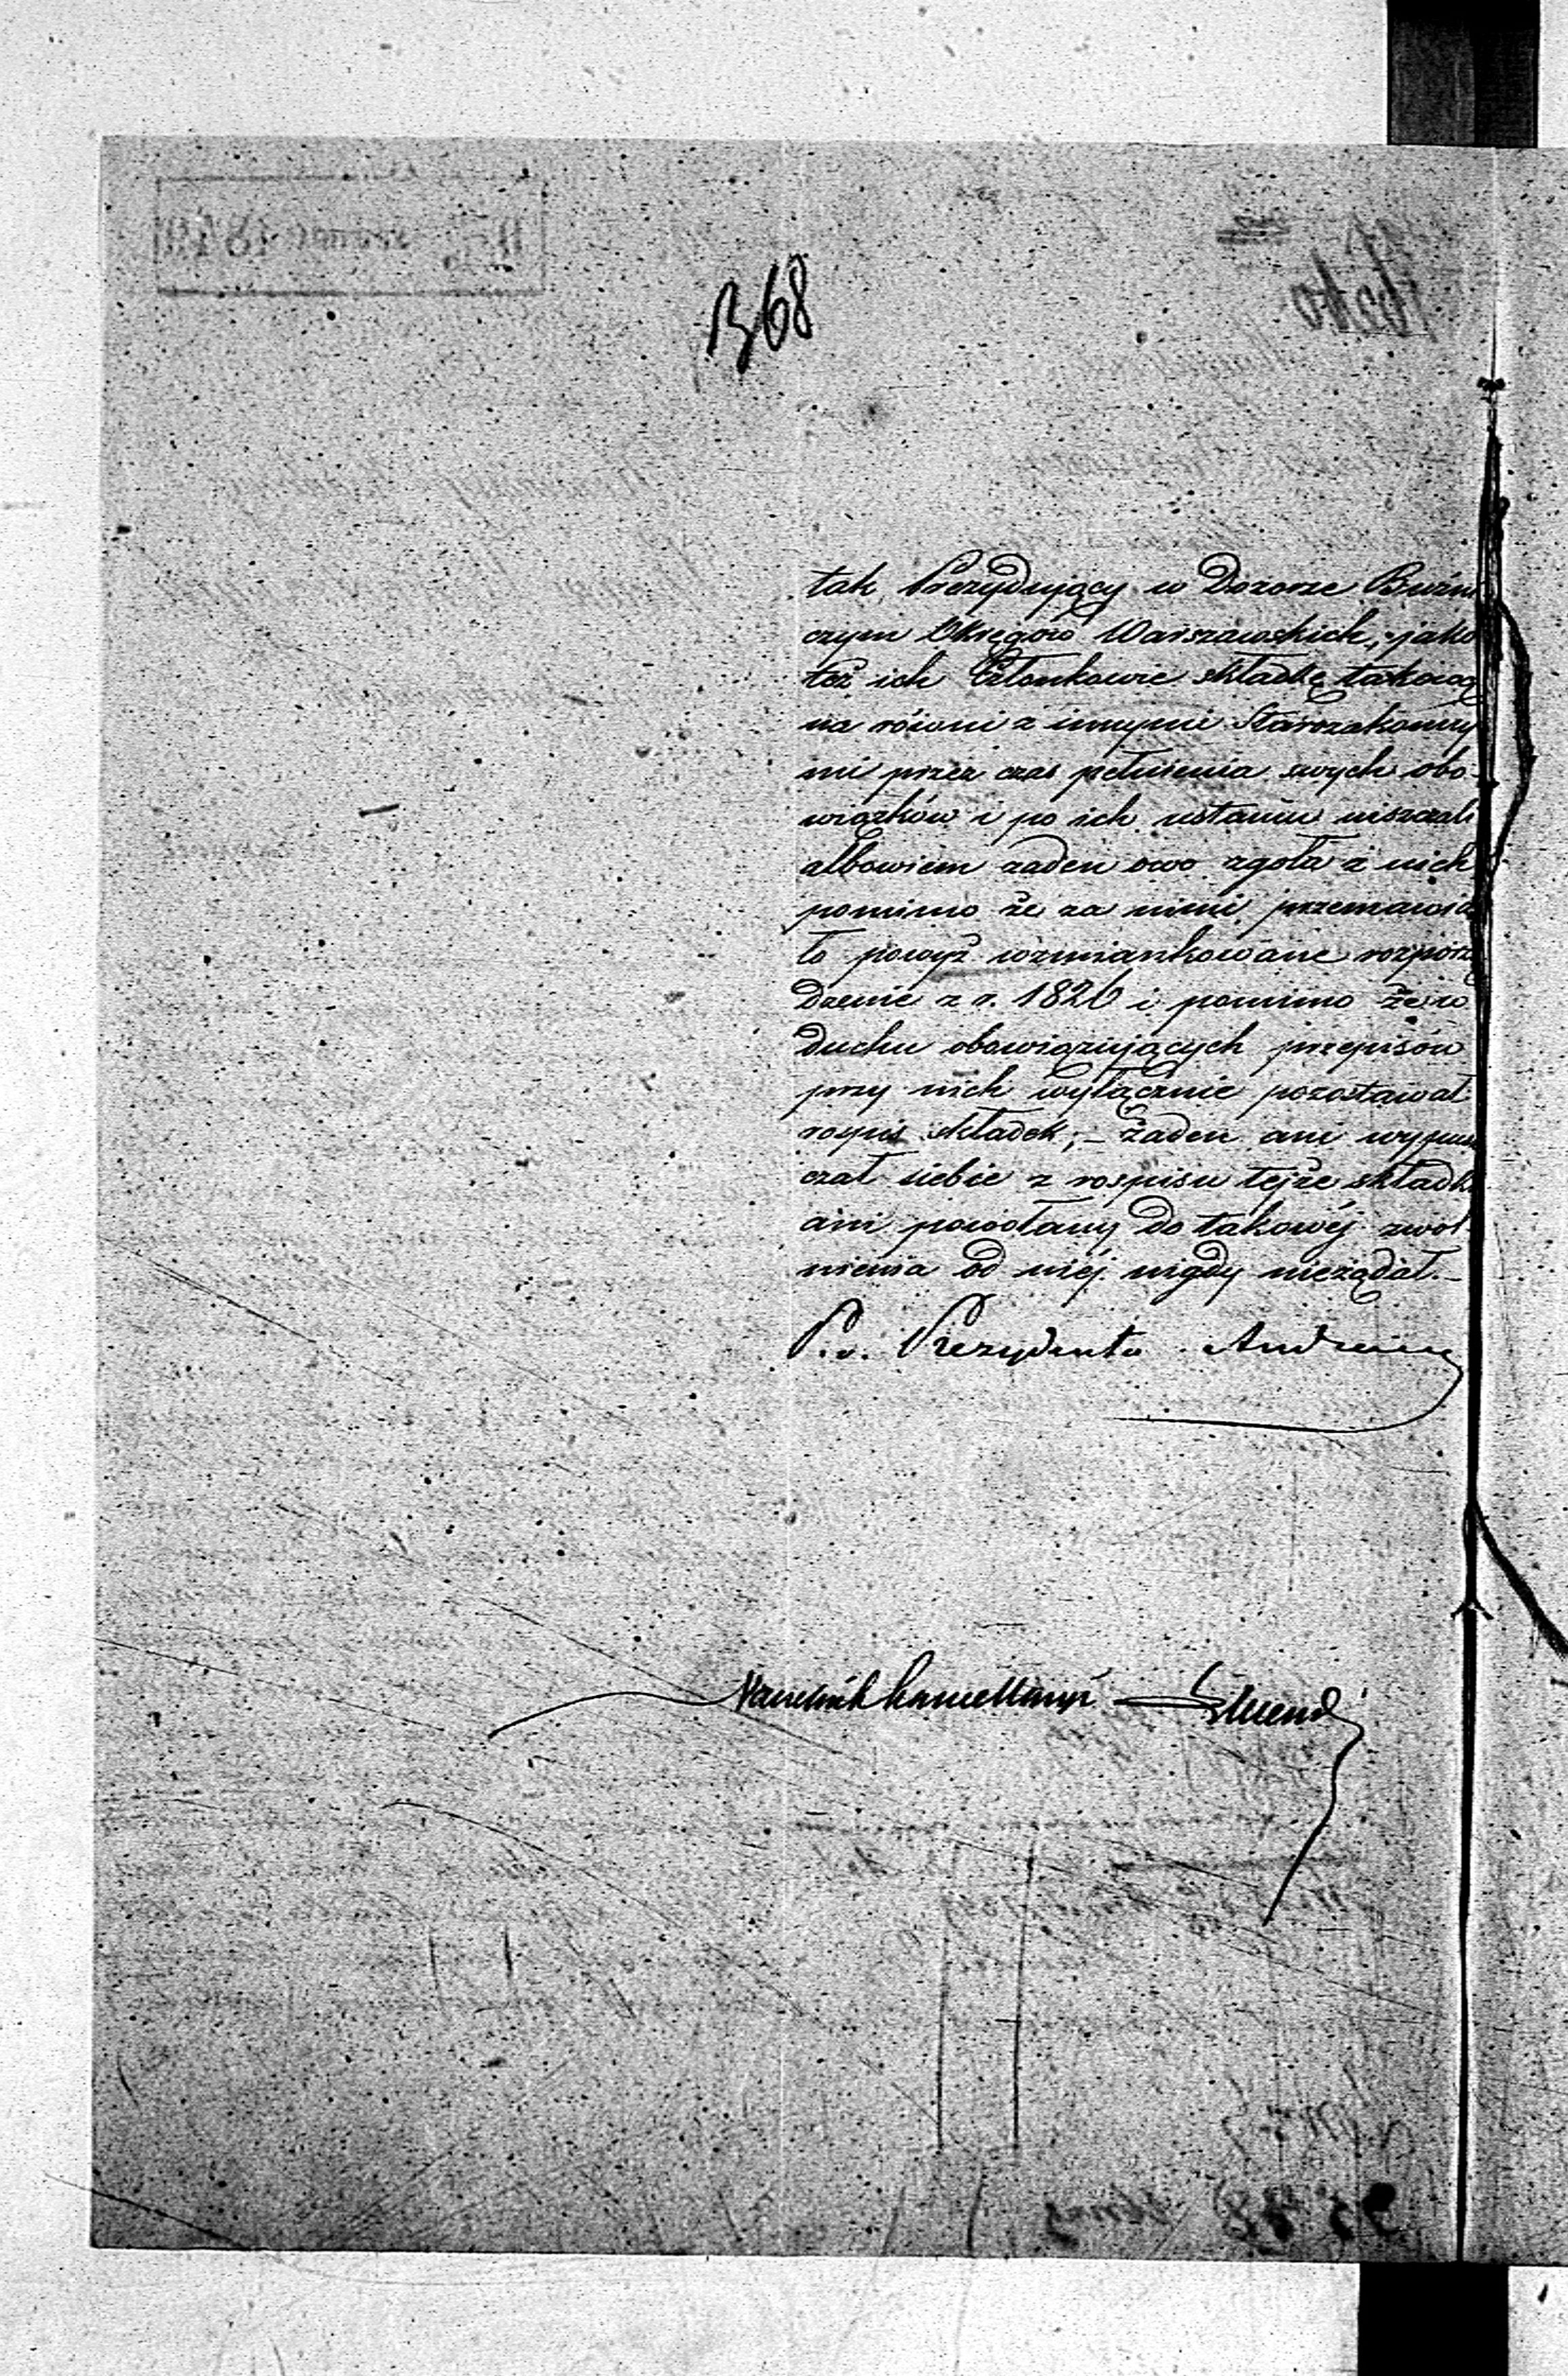 368
tak Prezydujący w Dozorze Bużni
czym Okręgów Warszawskich, jako
też ich Członkowie składkę takową
na równi z innymi Starozakonny
mi przez czas pełnienia swych obo-
wiązków i po ich ustaniu uiszczali
albowiem żaden owo zgoła z nich
pomimo że za nimi przemawia
ło powyż wzmiankowane rozporzą
dzenie z r. 1826 i pomimo że w
duchu obowiązujących przepisów
przy nich wyłącznie pozostawał
rozpis składek; – żaden ani wypusz
czał siebie z rospisu tejże składki
ani powołany do takowéj zwol
nienia od niéj nigdy nieżądał. –
P. o. Prezydenta
Naczelnik Kancellaryi